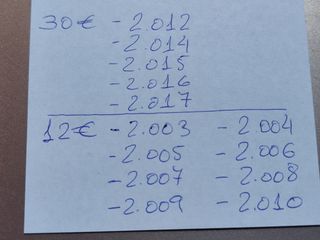 30€ - 2.012
- 2.014
- 2.015
- 2.016
- 2.017
12€ - 2.003 - 2.004
- 2.005 - 2.006
- 2.007 - 2.008
- 2.009 - 2.010